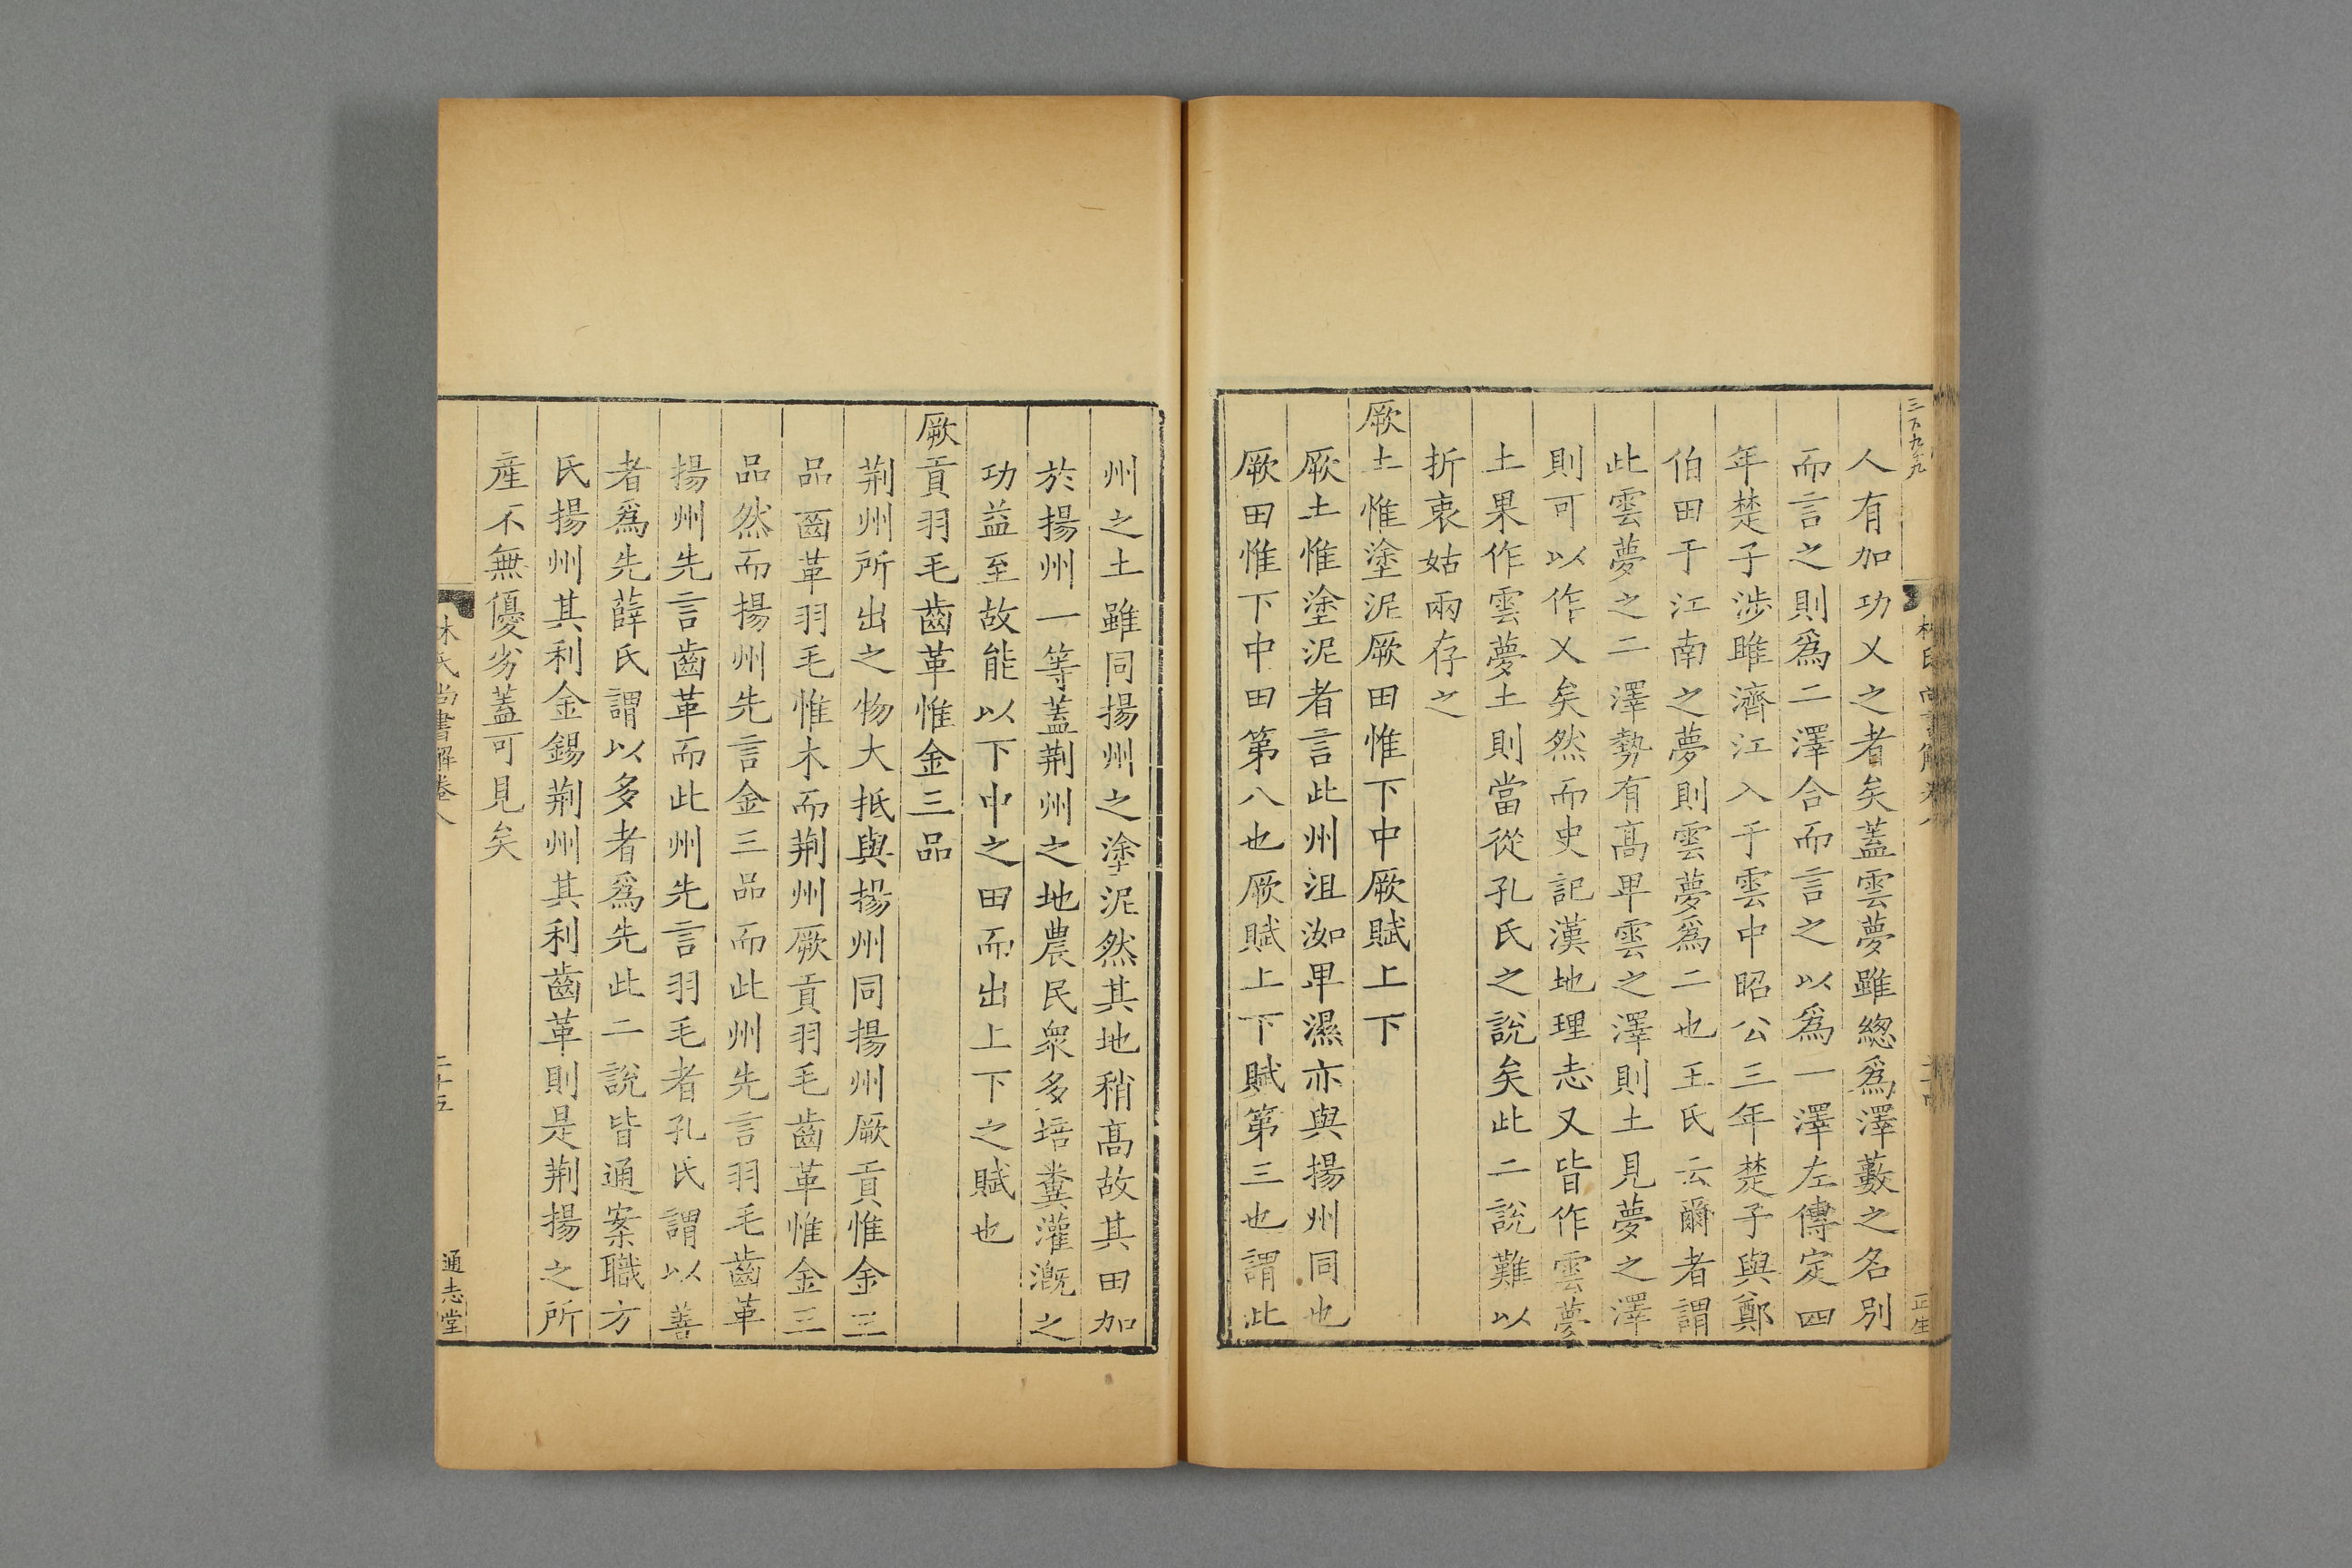 人有加功乂之者矣蓋雲夢雖緫爲澤藪之名別
而言之則爲二澤合而言之以爲一澤左傳定四
年楚子涉雎濟江入于雲中昭公三年楚子與鄭
伯田于江南之夢則雲夢爲二也王氏云爾者謂
此雲夢之二澤勢有髙卑雲之澤則土見夢之澤
則可以作乂矣然而史記漢地理志又皆作雲夢
土果作雲夢土則當從孔氏之說矣此二說難以
折衷姑兩存之
厥土惟塗泥厥田惟下中厥賦上下
厥土惟塗泥者言此州沮洳卑濕亦與揚州同也
厥田惟下中田第八也厥賦上下賦第三也謂此
州之土雖同揚州之塗泥然其地稍髙故其田加
於揚州一等蓋荆州之地農民衆多培糞灌漑之
功益至故能以下中之田而出上下之賦也
厥貢羽毛齒革惟金三品
荆州所出之物大抵與揚州同揚州厥貢惟金三
品齒革羽毛惟木而荆州厥貢羽毛齒革惟金三
品然而揚州先言金三品而此州先言羽毛齒革
揚州先言齒革而此州先言羽毛者孔氏謂以善
者爲先薛氏謂以多者爲先此二說皆通案職方
氏揚州其利金錫荆州其利齒革則是荆揚之所
産不無優劣蓋可見矣
林氏尚書解卷八
二十五
通志堂